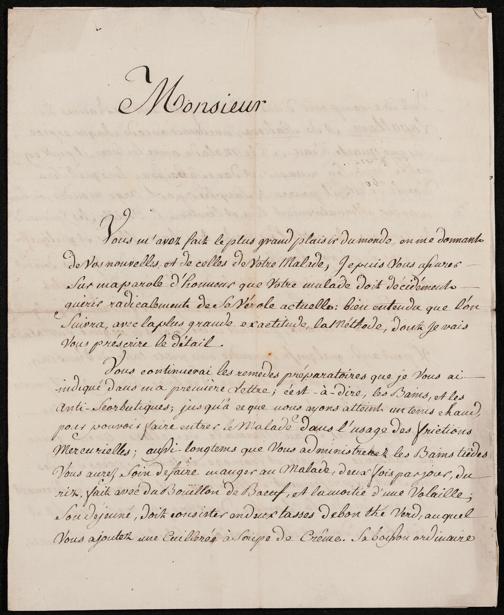 Monsieur
Vous m'avez fait le plus grand plaisir du monde, en me donnant
de Vos nouvelles, et de celles de Votre Malade, Je puis Vous assurer
Sur ma parole d'honneur que Votre malade doit décidement
guérir radicalement de Sa Vérole actuelle: bien entendu que l'on
Suivra, avec la plus grande exactitude, la Méthode, dont Je vais
Vous prescrire le détail.
Vous continuerai les remèdes préparatoires que je Vous ai
indiqué dans ma première Lettre; c'est-à-dire, les Bains, et les
Anti-Scorbutiques; jusqu'à ce que nous ayons atteint un tems chaud,
pour pouvoir faire entrer le Malade dans l'usage des frictions
Mercurielles; aussi longtems que Vous administrerez les Bains tièdes
Vous aurez Soin de faire manger au Malade, deux fois par jour, du
riz, fait avec du Bouillon de Bœuf, et la moitié d'une Volaille;
Son déjeuné, doit consister en deux tasses de bon thé Verd, auquel
Vous ajoutez une Cuillerée à Soupe de Crême. Sa boisson ordinaire